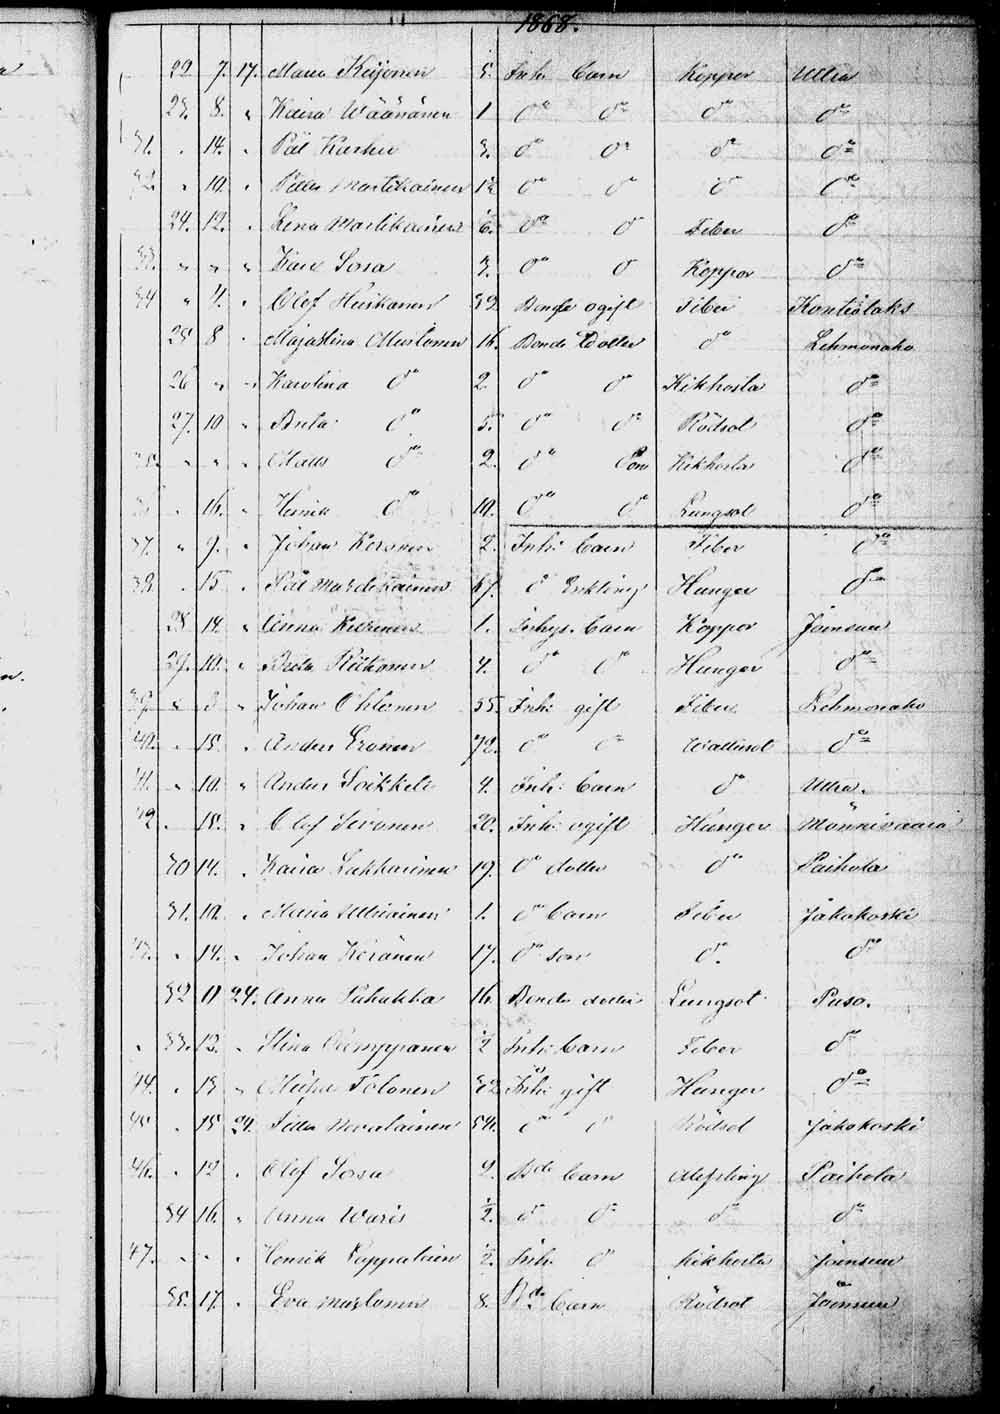 1868.
22 7. 17. Maria Keijonen 3. Inh: barn Koppor Utra
23. 8. " Kaisa Wäänänen 1 do do do do
31. . 14. . Pål Karhu 3. do do do do
" 10. . Martikainen 1/2 do do do do
24. 12. . Lena Martikainen 6. do do Feber do
33. " " " Sosa 3. do do Koppor do
34 " 4. . Olof Huskanen 32 Bonde ogift Feber Kontiolaks
25 8 . Majastina Mustonen 16. Bonde Dotter do Lehmonaho
26 " " Karolina do 2 do do Kikhosta do
27. 10 " Brita do 5. do do Rödsot do
" " " Matts do 2. do Son Kikhosta do
. 16. " Henrik do 10. do do Lungsot do
37. " 9. . Johan Keronen 2. Inh: barn Feber do
38. . 15 . Pål Martikainen 67. do Enkling Hunger do
28 14. " Anna 1. Inhys. barn Koppor Joensuu
29. 10. " Brita Riikonen 4. do do Hunger do
39. " " Johan Ohtonen 55. Inh: gift Feber Lehmonaho
40. . 15. . Anders Eronen 72. do do Wattusot do
41. " 10. " Anders Soikkeli 4. Inh: barn do Utra.
42. . 15. . Olof Sivonen 20. Inh: ogift Hunger Mönnivaara
30 14. . Kaisa Lakkarinen 19. do dotter do Paihola
31. 10. . Maria Utriainen 1. do barn Feber Jakokoski
43. " 14. " Johan Keränen 17. do son do. do
32 11 24. Anna Puhakka 16. Bonde dotter Lungsot Puso.
33. 13. . Stina Kemppanen 1/2 Inh: barn Feber do
44. . 13 " Tolonen 32 Inh: gift Hunger do
45 . 15 24. Petter Nevalainen 54. do do Rödsot Jakokoski
46. . 12 . Olof Sosa 2. Bde barn Messling Paihola
34 16. " Anna Waris 1/2. do do do do
47. " " . Henrik 1/2. Inh: do Kikhosta Joensuu
35. 17. . Eva Mustonen 8. Bde barn Rödsot Joensuu